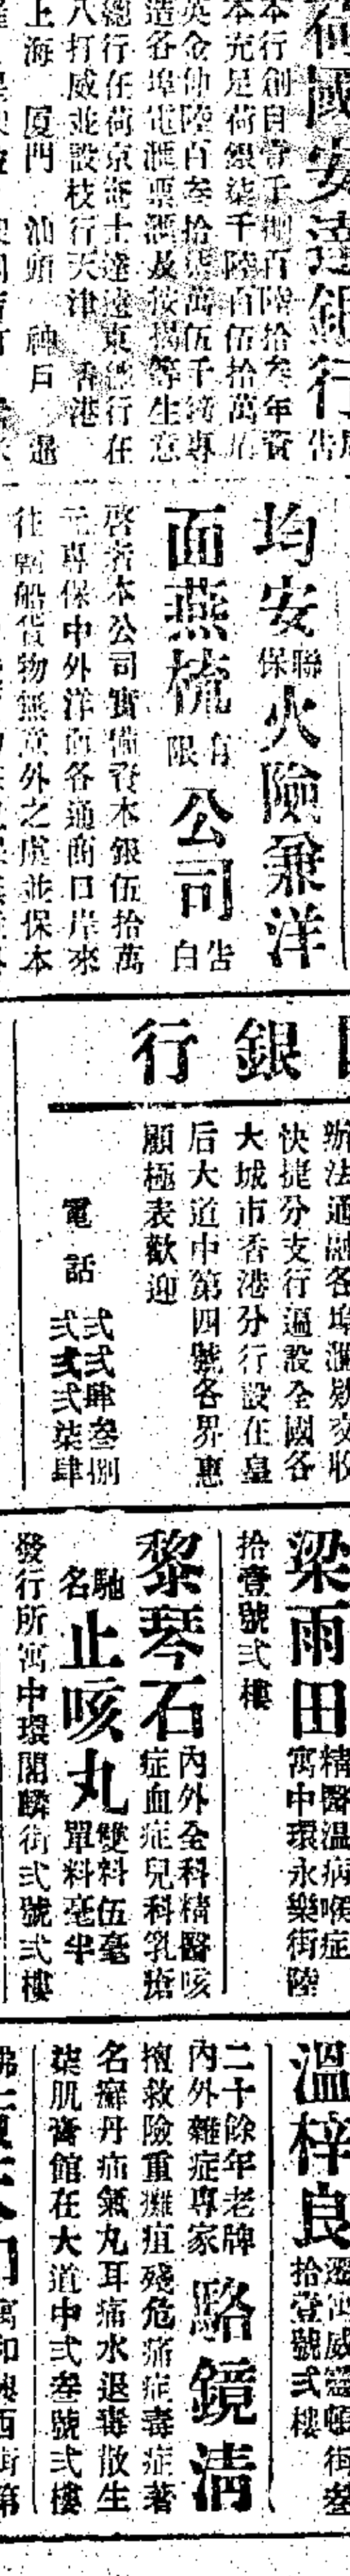 荷國安達銀行
告白
本行創自壹千捌百陸拾叁年資
本充足荷銀柒千陸百伍拾萬盾
英金
造各埠電滙票滙及按揭等生意
總行在荷京
八打威並設枝行天津 香港
上海 厦門 汕頭 神戶
均安
聯保
火險兼洋
面燕梳
有限
公司
告白
啓者本公司實備資本銀伍拾萬
元專保中外洋面各通商口岸來
往船貨物無意外之虞並保本
銀行
辦法通融各埠滙欵交收
快捷分支行遍設全國各
大城市香港分行設在皇
后大道中第四號各界惠
顧極表歡迎
電話
弍弍肆叁捌
弍弍弍柒肆
梁雨田
精醫溫病喉症
寓中環永樂街陸
拾壹號弍樓
黎琴石
內外全科精醫咳
症血症兒科乳瘡
馳名
止咳丸
雙料伍毫
單料毫半
發行所寓中環閣麟街弍號弍樓
溫梓良
遷寓威靈頓街叁
拾壹號弍樓
二十餘年老牌
內外雜症專家
駱鏡清
擅救險重癱疽殘危痛症毒症著
名癬丹痛氣丸耳痛水退毒散生
肌膏館在大道中弍叁號弍樓
西街第